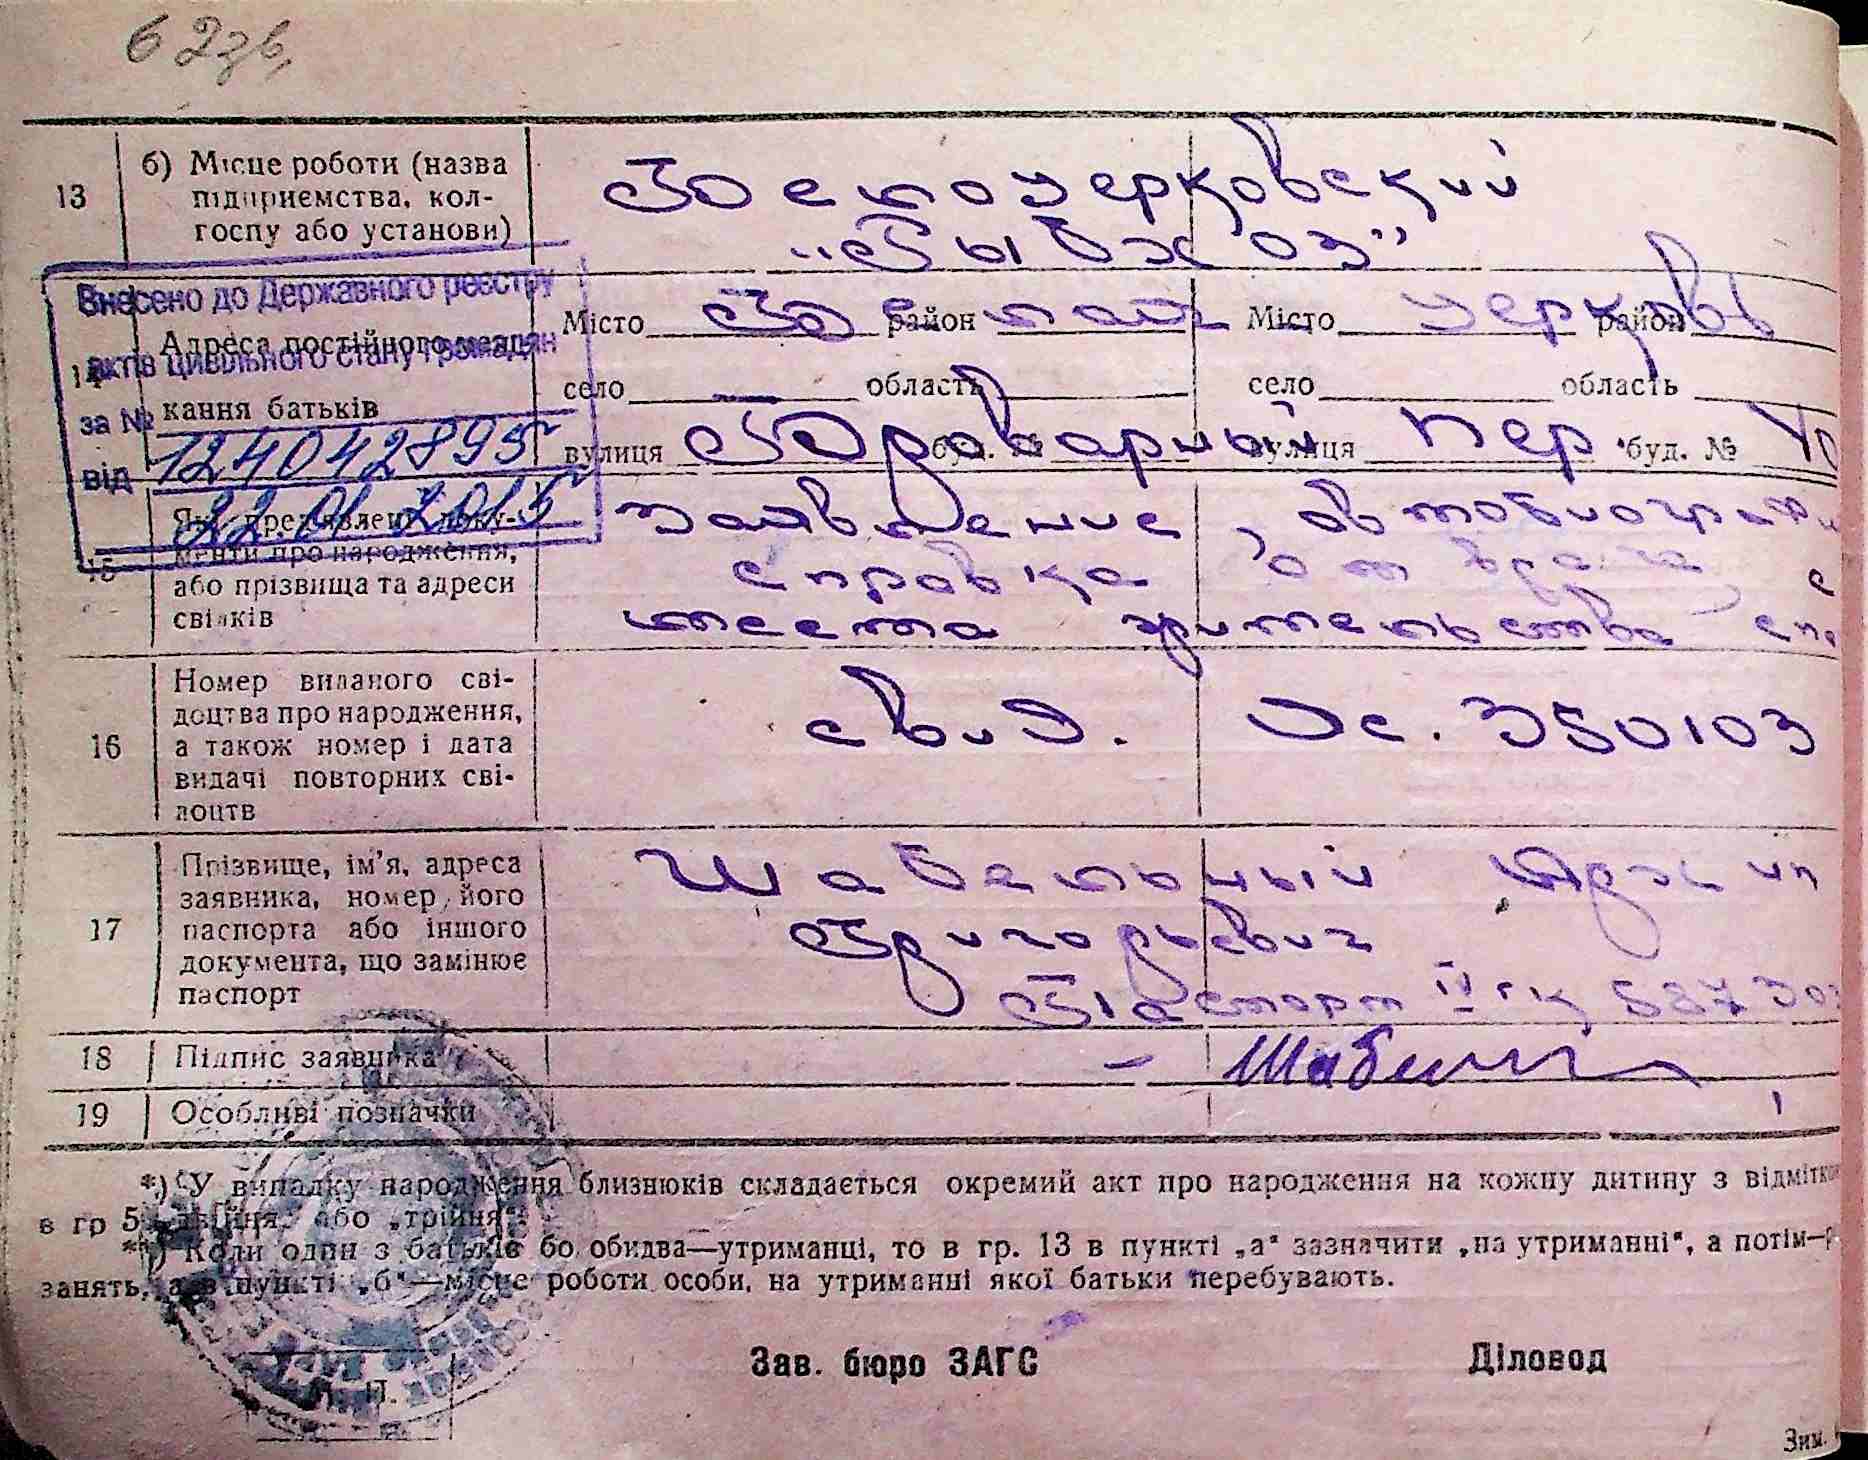 62зв,
13 б) Місце роботи (назва підприємства, колгоспу або установи)
Белоцерковский
"Рыбхоз"
Внесено до Державного реєстру
актів цивільного стану громадян
за № 124042895
від 22.01.2015
14 Адреса постійного мешкання батьків
Місто Белая район Місто Церковь район
село — область село область
вулиця Броварный буд. № вулиця пер. буд. №
15 Які пред'явлені документи про народження, або прізвища та адреси свідків
Заявление, автобиогра
справка от врача, с
места жительства
16 Номер виданого свідоцтва про народження, а також номер і дата видачі повторних свідоцтв
свид. 350103
17 Прізвище, ім'я, адреса заявника, номер його паспорта або іншого документа, що замінює паспорт
Шабельный
Григорьевич
Паспорт
18 Підпис заявника —
19 Особливі позначки
*) У випадку народження близнюків складається окремий акт про народження на кожну дитину з відмітко
в гр 5 „двійня" або „трійня".
**) Коли один з батьків бо обидва—утриманці, то в гр. 13 в пункті „а" зазначити „на утриманні", а потім—р
занять, а в пункті „б"—місце роботи особи, на утриманні якої батьки перебувають.
М. П.
Зав. бюро ЗАГС Діловод
Зим.